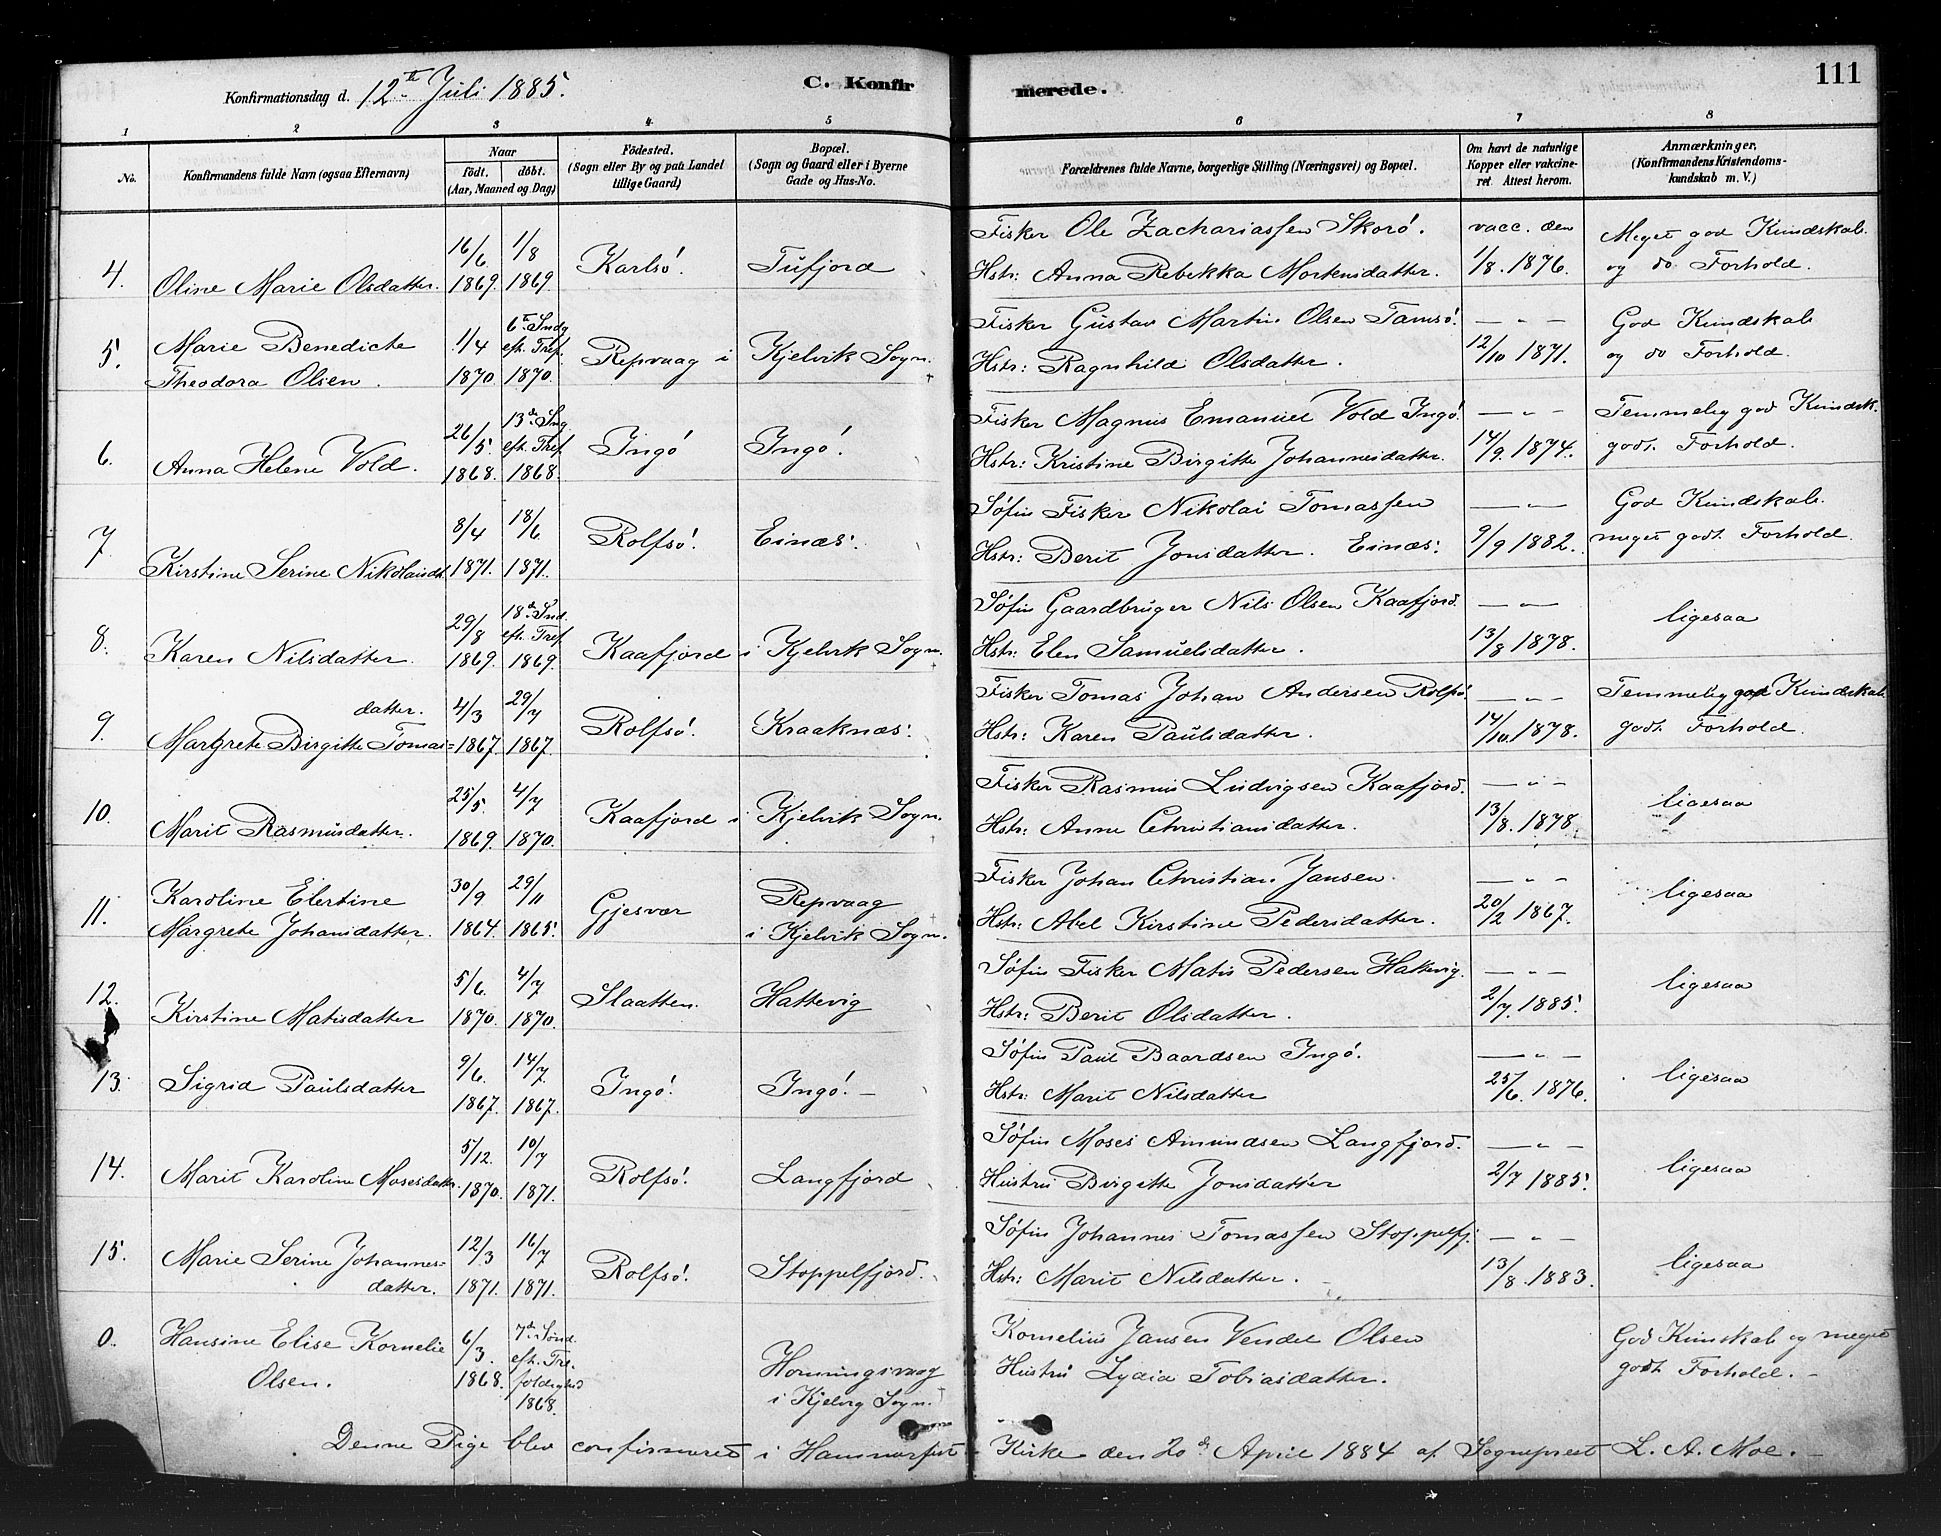 Konfirmationsdag d. 12te Juli 1885. C. Konfirmerede. 111
1 2 3 4 5 6 7 8
No. Konfirmandens fulde Navn (ogsaa Efternavn) Naar født. døbt. (Aar, Maaned og Dag) Födested. (Sogn eller By og paa Landet tillige Gaard) Bopæl. (Sogn og Gaard eller i Byerne Gade og Hus-No. Forældrenes fulde Navne, borgerlige Stilling (Næringsvei) og Bopæl. Om havt de naturlige Kopper eller vakcineret. Attest herom. Anmærkninger, (Konfirmandens Kristendomskundskab m. V.)
4. Oline Marie Olsdatter. 16/6 1869. 1/8 1869. Karlsö. Tufjord Fisker Ole Zachariassen Skorö. vacc. den Meget god Kundskab
Hstr: Anna Rebekka Mortensdatter. 1/8. 1876. og do Forhold.
5. Marie Benedicte Theodora Olsen. 1/4 1870 6te Sndg eft. Tref. 1870. Repvaag i Kjelvik Sogn. Fisker Gustav Martin Olsen Tamsö. — " — God Kundskab
Hstr: Ragnhild Olsdatter. 12/10 1871. og do Forhold.
6. Anna Helene Vold. 26/5. 1868. 13de Sng eft. Tref 1868. Ingö Ingö. Fisker Magnus Emanuel Vold Ingö. — " — Temmelig god Kundsk.
Hstr: Kristine Birgitte Johannesdatter. 14/9. 1874. godt Forhold.
7. Kirstine Serine Nikolaidt. 8/4 1871. 18/6 1871. Rolfsö. Einæs. Søfin Fisker Nikolai Tomassen — " — God Kundskab.
Hstr: Berit Jonsdatter. Einæs. 9/9 1882. meget godt Forhold.
8. Karen Nilsdatter. 29/8 1869. 18de Snd. eft. Tref 1869. Kaafjord i Kjelvik Sogn. Søfin Gaardbruger Nils Olsen Kaafjord. — " — ligesaa
Hstr: Elen Samuelsdatter. 13/8 1878.
9. Margrete Birgitte Tomas= datter. 4/3 1867. 29/7 1867. Rolfsö. Kraaknæs. Fisker Tomas Johan Andersen Rolfsö. — " — Temmelig god Kundskab
Hstr: Karen Paulsdatter. 14/10. 1878. godt Forhold.
10. Marit Rasmusdatter. 25/5. 1869. 4/7 1870. Kaafjord i Kjelvik Sogn. Fisker Rasmus Ludvigsen Kaafjord. — " — ligesaa
Hstr: Anne Christiansdatter. 13/8. 1878.
11. Karoline Elertine Margrete Johansdatter. 30/9 1864. 29/11 1865. Gjesvær Repvaag i Kjelvik Sogn. Fisker Johan Christian Jansen. — " — ligesaa
Hstr: Abel Kirstine Pedersdatter. 20/2 1867.
12. Kirstine Matisdatter 5/6. 1870. 4/7 1870. Slaatten. Hattevig Søfin Fisker Matis Pedersen Hattevig. — " — ligesaa
Hstr: Berit Olsdatter. 2/7. 1885.
13. Sigrid Paulsdatter 9/6. 1867. 14/7. 1867. Ingö. Ingö. — Søfin Paul Baardsen Ingö. — " — ligesaa
Hstr: Marit Nilsdatter 25/6. 1876.
14. Marit Karoline Mosesdatter. 5/12. 1870. 10/7 1871. Rolfsö. Langfjord Søfin Moses Amundsen Langfjord. — " — ligesaa
Hustru Birgitte Jonsdatter 2/7 1885.
15. Marie Serine Johannes= datter. 12/3 1871. 16/7 1871. Rolfsö. Stoppelfjord. Søfin Johannes Tomassen Stoppelfj. — " — ligesaa
Hstr: Marit Nilsdatter. 13/8. 1883.
0. Hansine Elise Kornelie Olsen. 6/3. 1868. 7de Sönd. eft. Tre. foldighed 1868. Honningsvaag i Kjelvig Sogn. Kornelius Jansen Vendel Olsen God Kunskab og meget
Hustru Lydia Tobiasdatter. godt Forhold. —
Denne Pige blev confirmeret i Hammerfest Kirke den 20de April 1884 af Sogneprest L. A. Moe. —